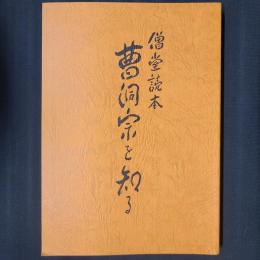 僧堂読本
曹洞宗を知る